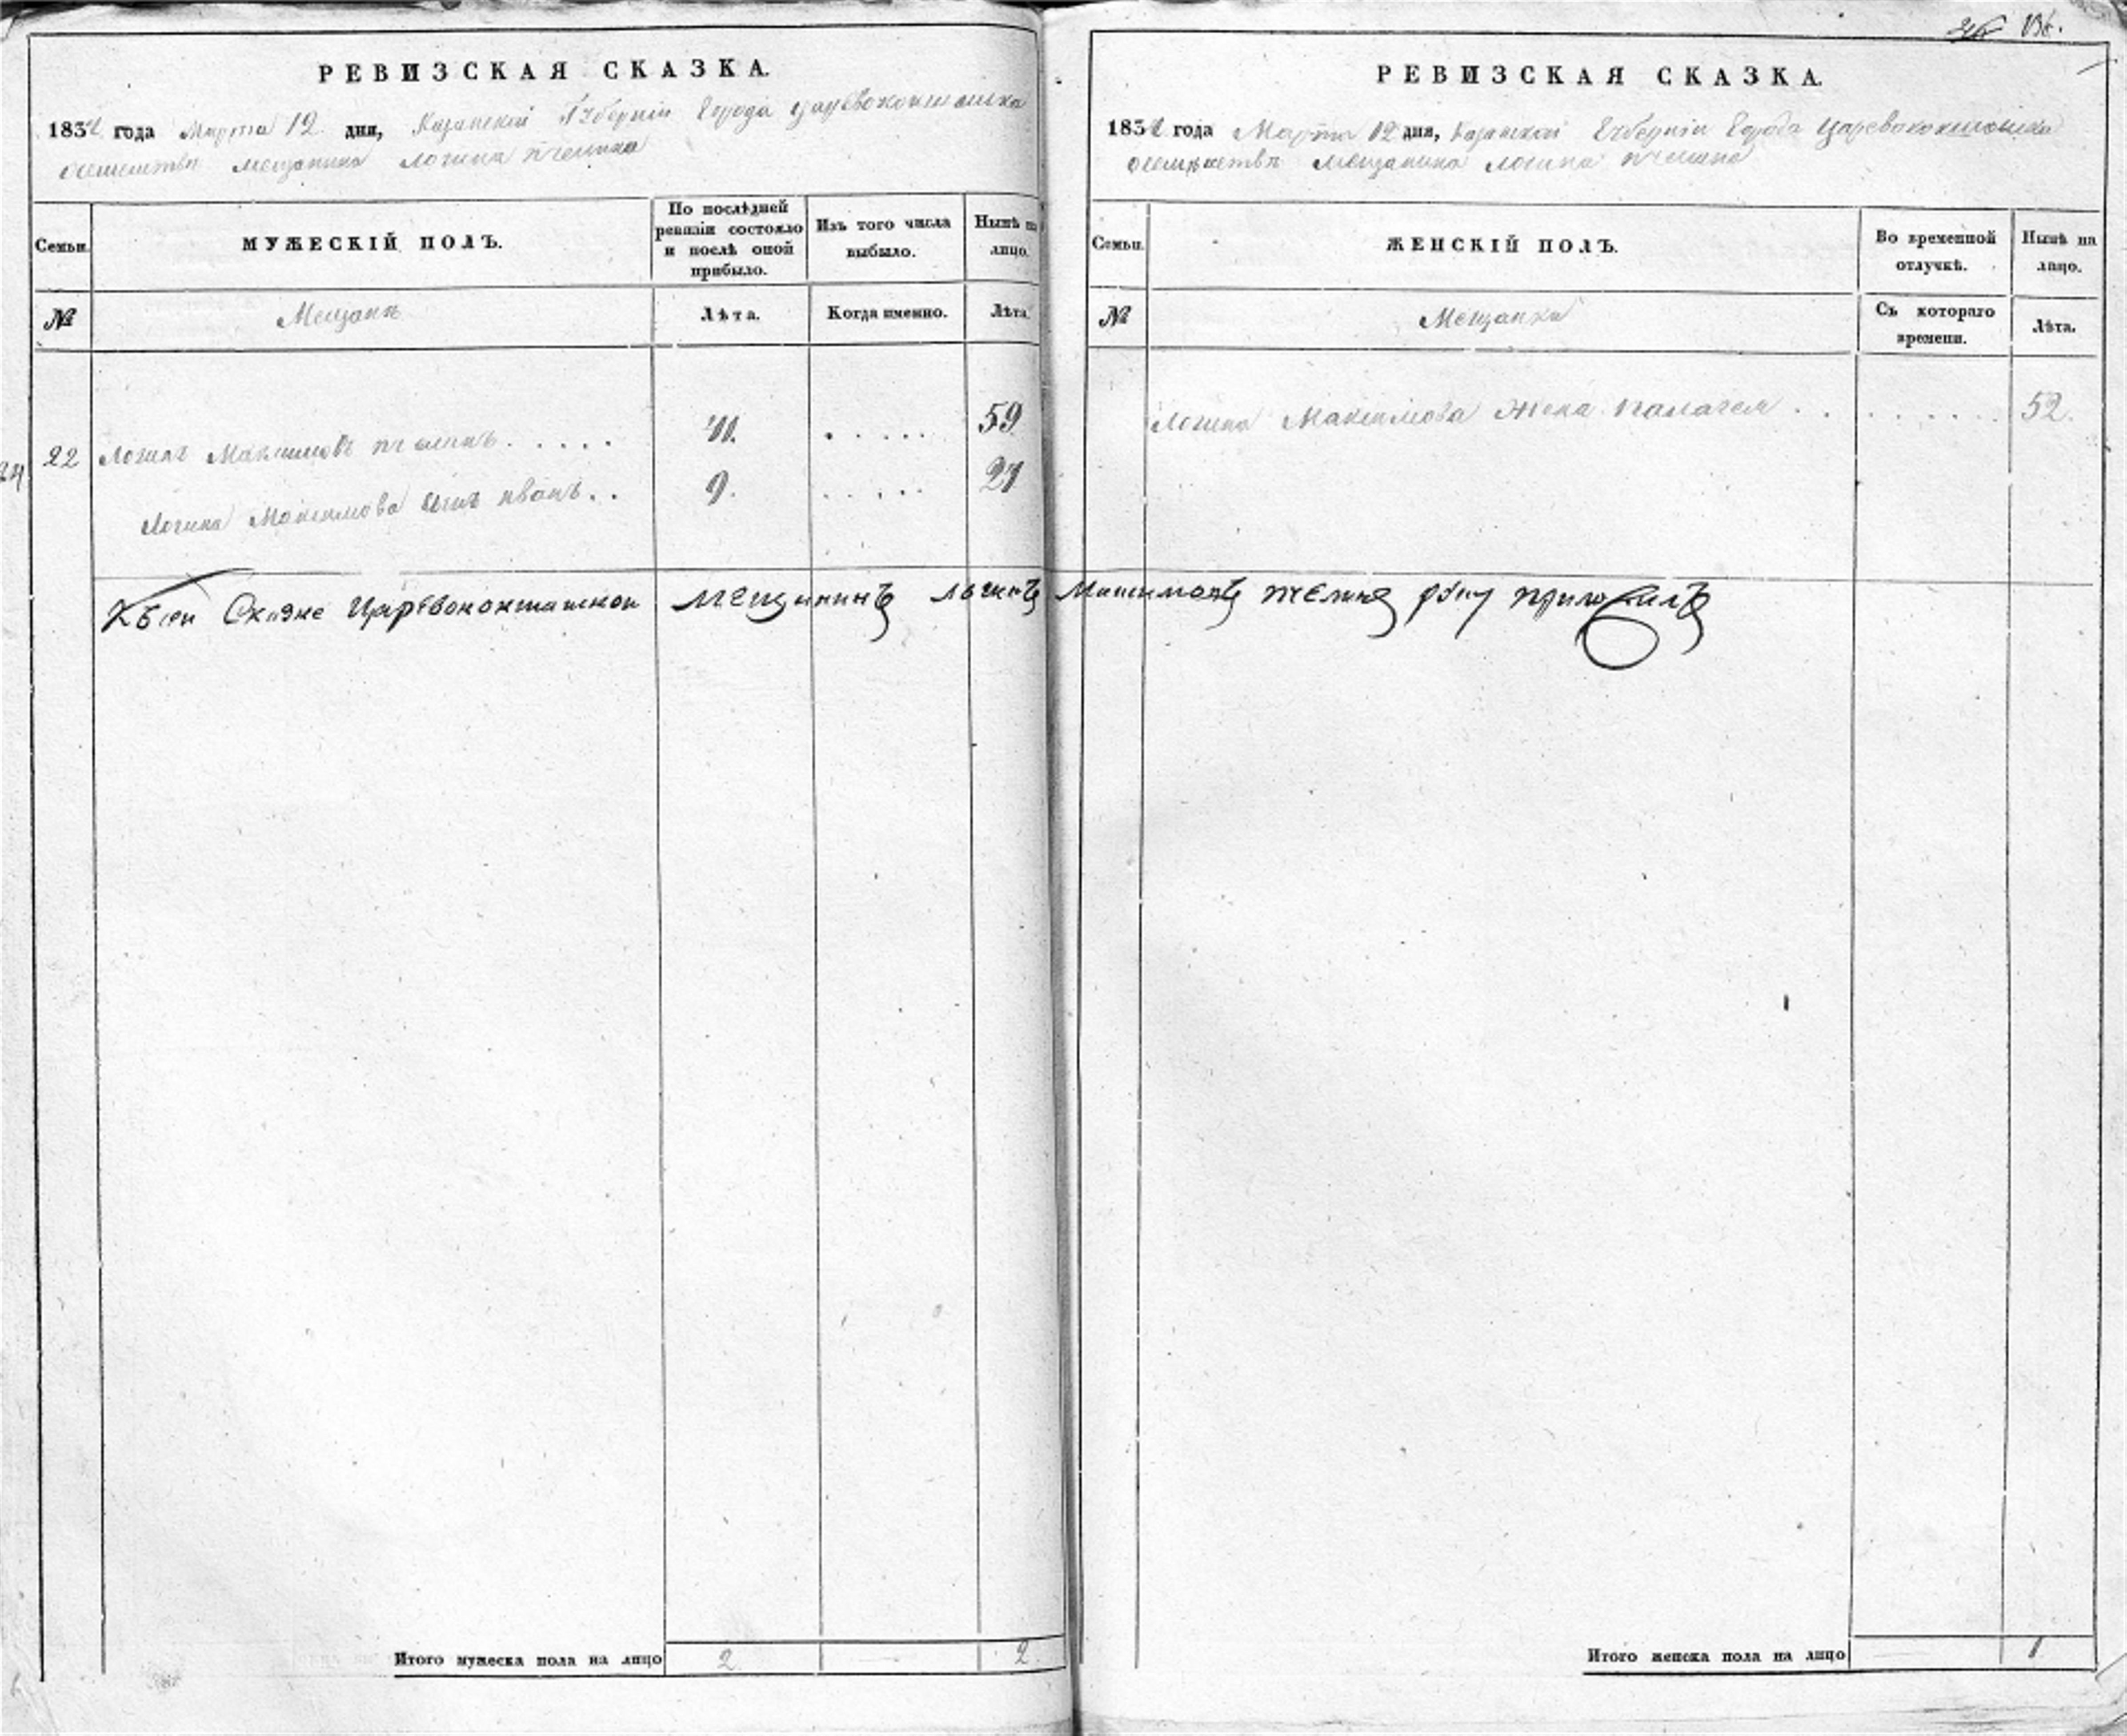 РЕВИЗСКАЯ СКАЗКА.
1834 года Марта 12 дня, Казанской Губерніи Города Царевококшайска
осемействѣ мещанина Логина Пчелина
Семьи.
МУЖЕСКІЙ ПОЛЪ.
По послѣдней ревизіи состояло и послѣ оной прибыло.
Изъ того числа выбыло.
Нынѣ на лицо.
№
Мещанъ
Лѣта.
Когда именно.
Лѣта.
22 Логинъ Максимовъ Пчелинъ. . . . . 41. . . . . . 59
Логина Максимова сынъ Иванъ. . 9. . . . . . 27
Итого мужеска пола на лицо 2 2.
136.
РЕВИЗСКАЯ СКАЗКА.
1834 года Марта 12 дня, Казанской Губерніи Города Царевококшайска
осемействѣ мещанина Логина Пчелина
Семьи.
ЖЕНСКІЙ ПОЛЪ.
Во временной отлучкѣ.
Нынѣ на лицо.
№
Мещанка
Съ котораго времени.
Лѣта.
Логина Максимова Жена Палагея . . . . . . . 52.
Ксей Скаске Царевококшайской мещининъ Логинъ Максимовъ Пчелинъ руку приложилъ
Итого женска пола на лицо 1